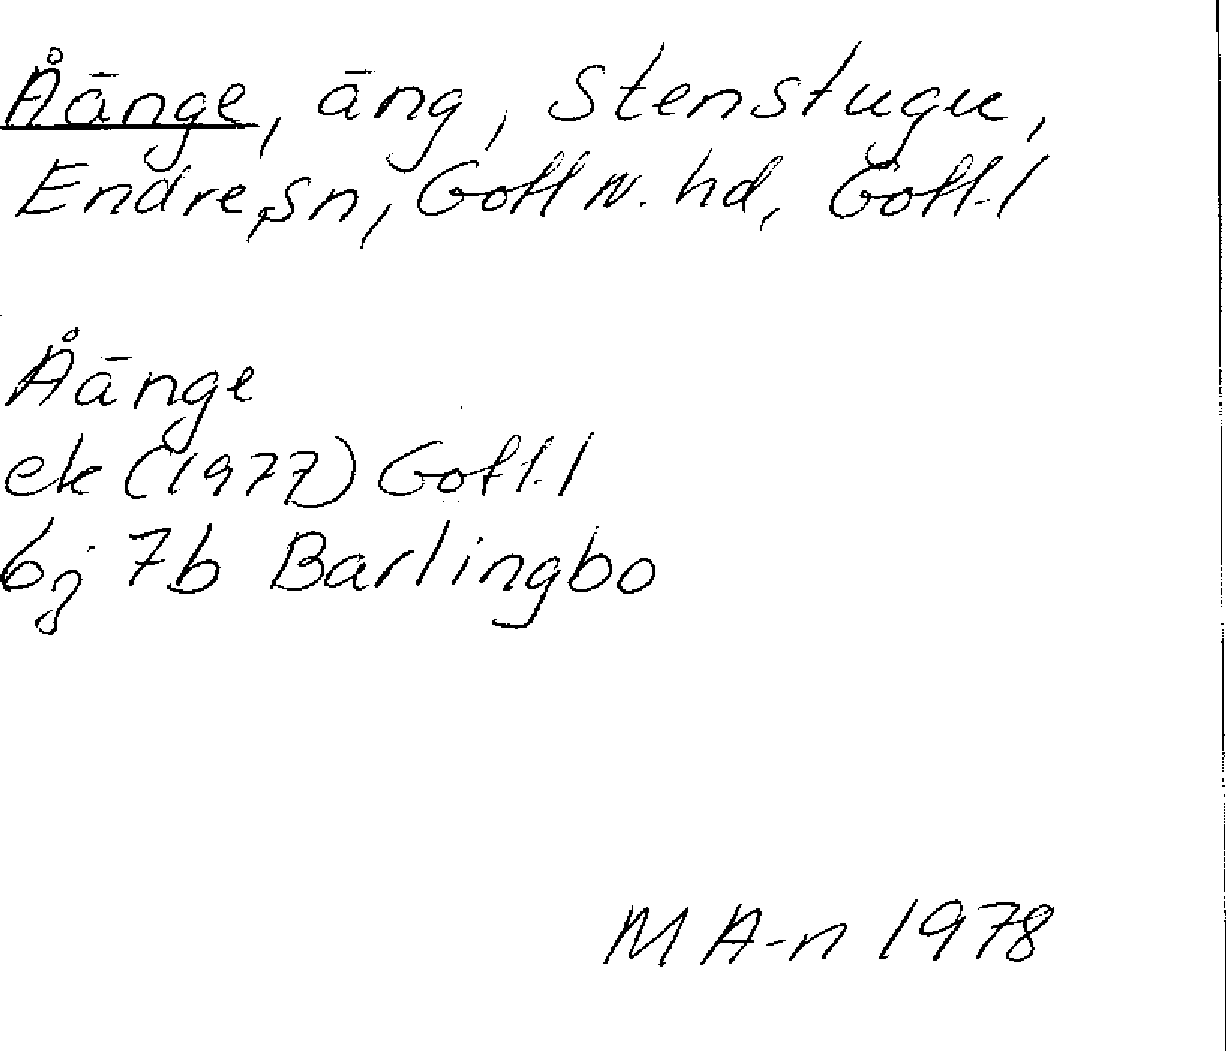 Åänge, äng, Stenstugu,
Endre, sn, Gotl N. hd, Gotl. l
Åänge
ek (1977) Gotl. l
6j 7b Barlingbo
M A-n 1978